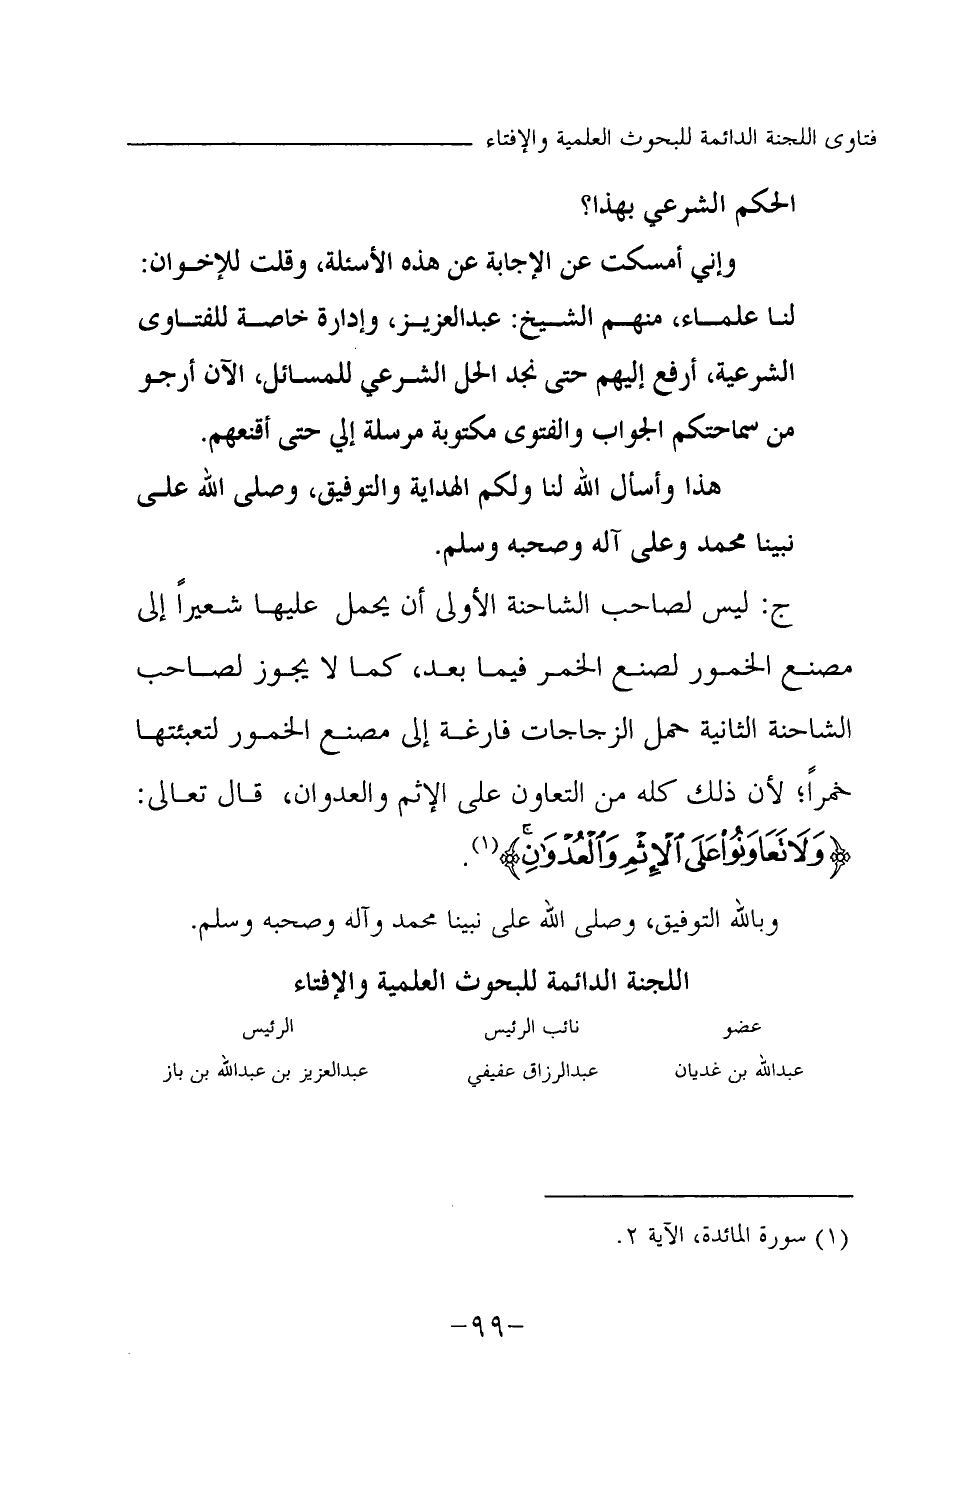 فتاوى اللجنة الدائمة للبحوث العلمية والإفتاء
الحكم الشرعي بهذا؟
وإني أمسكت عن الإجابة عن هذه الأسئلة، وقلت للإخـوان:
لنـا علمـاء، منهـم الشـيخ: عبدالعزيـز، وإدارة خاصـة للفتـاوى
الشرعية، أرفع إليهم حتى نجد الحل الشـرعي للمسـائل، الآن أرجـو
من سماحتكم الجواب والفتوى مكتوبة مرسلة إلي حتى أقنعهم.
هذا وأسأل الله لنا ولكم الهداية والتوفيق، وصلى الله علـى
نبينا محمد وعلى آله وصحبه وسلم.
ج: ليس لصاحب الشاحنة الأولى أن يحمل عليهـا شـعيراً إلى
مصنـع الخمـور لصنـع الخمـر فيمـا بعـد، كمـا لا يجـوز لصـاحب
الشاحنة الثانية حمل الزجاجات فارغـة إلى مصنـع الخمـور لتعبئتهـا
خمراً؛ لأن ذلك كله من التعاون على الإثم والعدوان، قـال تعـالى:
﴿وَلَا تَعَاوَنُوا۟ عَلَى ٱلْإِثْمِ وَٱلْعُدْوَٰنِ ۚ﴾(١).
وبالله التوفيق، وصلى الله على نبينا محمد وآله وصحبه وسلم.
اللجنة الدائمة للبحوث العلمية والإفتاء
عضو نائب الرئيس الرئيس
عبدالله بن غديان عبدالرزاق عفيفي عبدالعزيز بن عبدالله بن باز
(١) سورة المائدة، الآية ٢.
-٩٩-